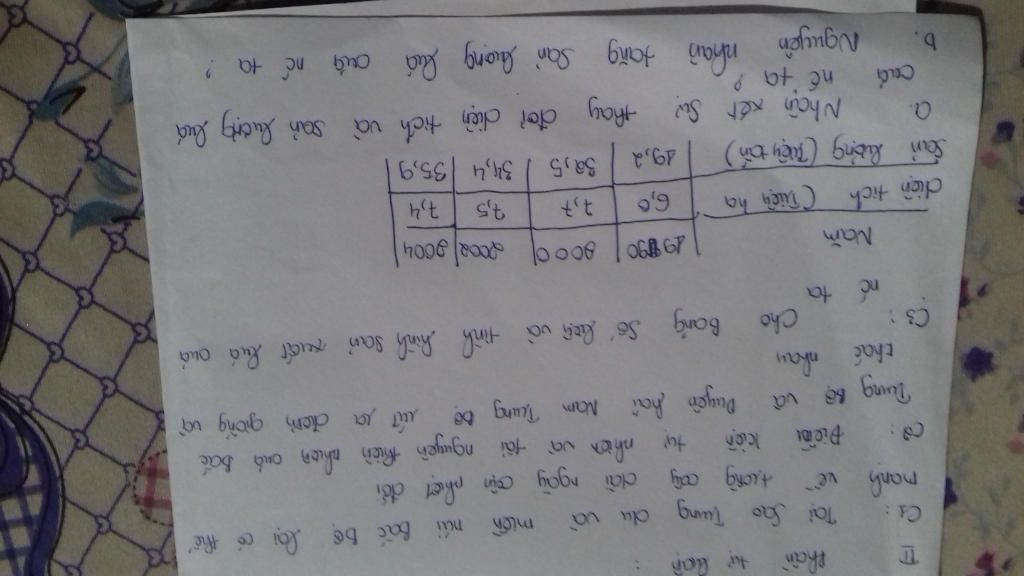 II phần tự luận :
C1: Tại sao Trung du và miền núi Bắc Bộ lại có thế
mạnh về trồng cây dài ngày cận nhiệt đới
C2: Điều kiện tự nhiên và tài nguyên thiên nhiên của Bắc
Trung Bộ và Duyên hải Nam Trung Bộ rút ra điểm giống và
khác nhau
C3: Cho Bảng số liệu về tình hình sản xuất lúa của
nc ta
Năm | 1990 | 2000 | 2002 | 2004
diện tích (Triệu ha | 6,0 | 7,7 | 7,5 | 7,4
Sản lượng (Triệu tấn) | 19,2 | 32,5 | 34,4 | 35,9
a. Nhận xét sự thay đổi diện tích và sản lượng lúa
của nc ta?
b. Nguyên nhân tăng sản lượng lúa của nc ta?